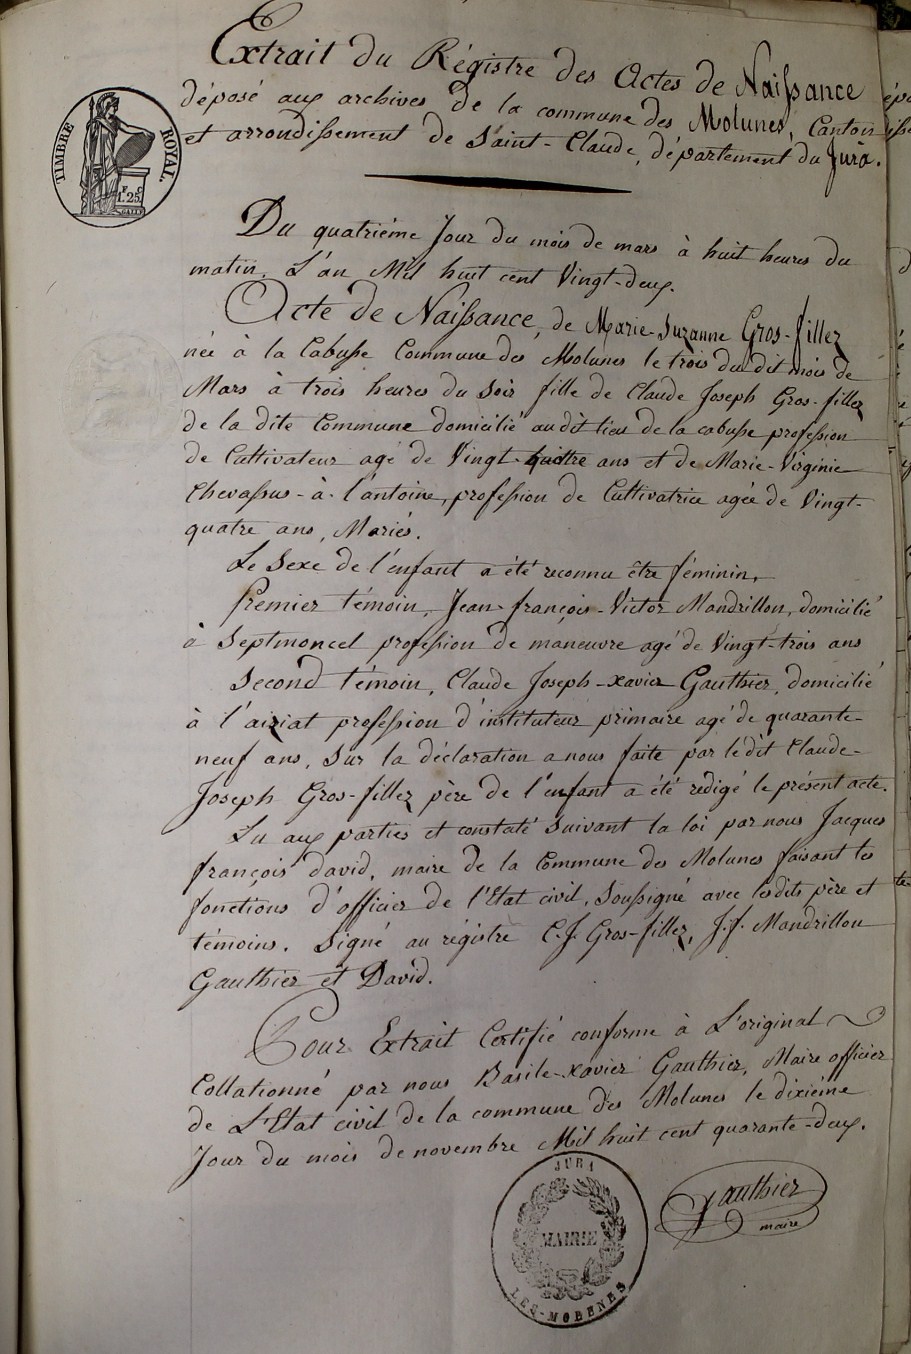 Extrait du Régistre des Actes de Naissance
déposé aux archives de la commune des Molunes, Canton
et arrondissement de Saint-Claude, département du Jura.
TIMBRE ROYAL.
1F. 25C.
Du quatriéme Jour du mois de mars à huit heures du
matin. L'an Mil huit cent Vingt-deux.
Acte de Naissance, de Marie-Suzanne Gros-fillez
née à la Cabusse Commune des Molunes le trois du dit mois de
Mars à trois heures du Soir fille de Claude Joseph Gros-fillez
de la dite Commune domicilié audit lieu de la cabusse profession
de Cultivateur agé de Vingt-huit ans et de Marie-Virginie
Chevassus-à-l'antoine, profession de Cultivatrice agée de Vingt-
quatre ans, Mariés.
Le Sexe de l'enfant a été reconnu être féminin.
Premier témoin, Jean-françois-Victor Mandrillon, domicilié
à Septmoncel profession de maneuvre agé de Vingt-trois ans
Second témoin, Claude Joseph-xavier Gauthier, domicilié
à l'aiziat profession d'instituteur primaire agé de quarante-
neuf ans, Sur la déclaration a nous faite par lédit Claude-
Joseph Gros-fillez père de l'enfant a été rédigé le présent acte.
Lu aux parties et constaté Suivant la loi par nous Jacques
françois david, maire de la Commune des Molunes faisant les
fonctions d'officier de l'Etat civil, Soussigné avec lesdits père et
témoins. Signé au régistre C. J. Gros-fillez, J. f. Mandrillon
Gauthier et David.
Pour Extrait Certifié conforme à L'original
Collationné par nous Basile-xavier Gauthier, Maire officier
de L'Etat civil de la commune des Molunes le dixiéme
Jour du mois de novembre Mil huit cent quarante-deux.
JURA
MAIRIE
Gauthier
maire